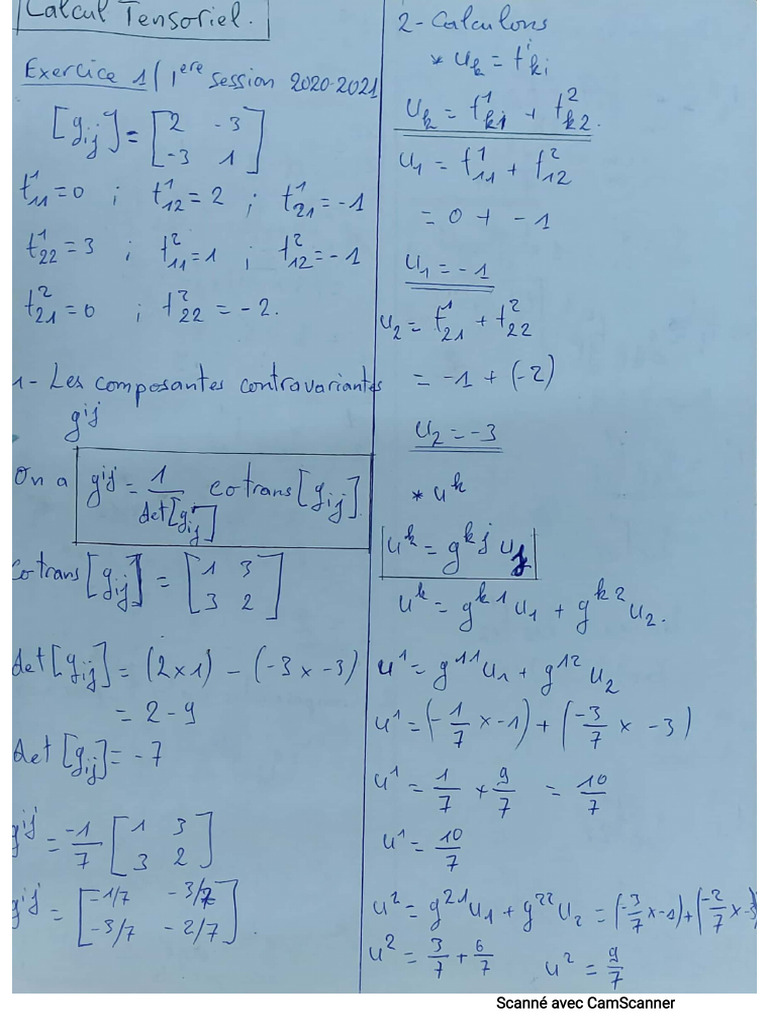 Calcul Tensoriel.
Exercice 1 / 1ere session 2020-2021
[gij] = [2 -3
-3 1]
t¹₁₁ = 0 ; t¹₁₂ = 2 ; t¹₂₁ = -1
t¹₂₂ = 3 ; t²₁₁ = 1 ; t²₁₂ = -1
t²₂₁ = 0 ; t²₂₂ = -2.
1- Les composantes contravariantes
gⁱʲ
On a gⁱʲ = 1/det[gij] cotrans[gij].
cotrans[gij] = [1 3
3 2]
det[gij] = (2x1) - (-3 x -3)
= 2 - 9
det[gij] = -7
gⁱʲ = -1/7 [1 3
3 2]
gⁱʲ = [-1/7 -3/7
-3/7 -2/7].
2- Calculons
* uk = tⁱki
uk = t¹k1 + t²k2.
u₁ = t¹₁₁ + t²₁₂
= 0 + -1
u₁ = -1
u₂ = t¹₂₁ + t²₂₂
= -1 + (-2)
u₂ = -3
* uᵏ
uᵏ = gᵏʲ uj
uᵏ = gᵏ¹u₁ + gᵏ²u₂.
u¹ = g¹¹u₁ + g¹²u₂
u¹ = (-1/7 x -1) + (-3/7 x -3)
u¹ = 1/7 + 9/7 = 10/7
u¹ = 10/7
u² = g²¹u₁ + g²²u₂ = (-3/7 x -1) + (-2/7 x -3)
u² = 3/7 + 6/7 u² = 9/7
Scanné avec CamScanner